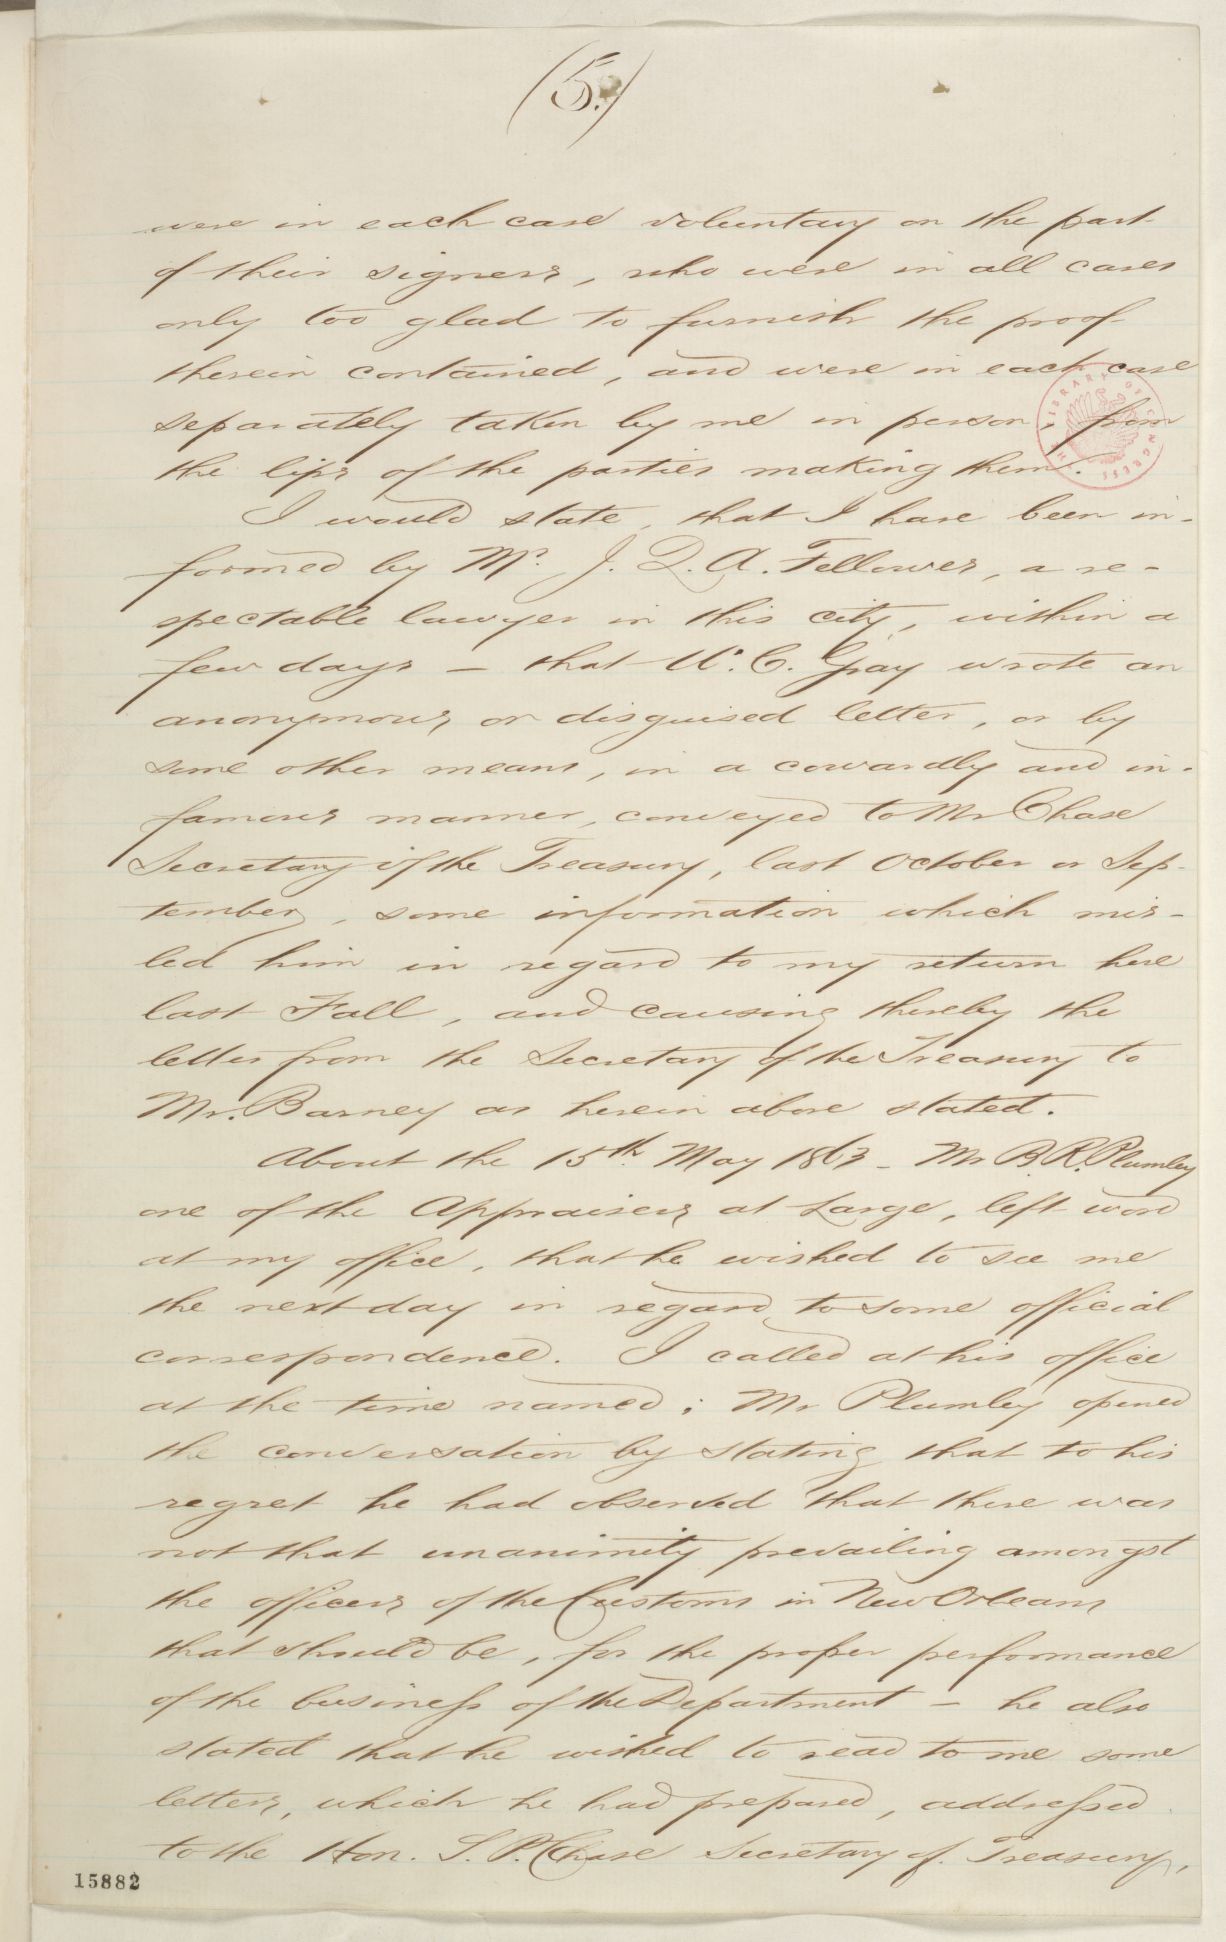 (5.)
were in each case voluntary on the part
of their signers, who were in all cases
only too glad to furnish the proof
therein contained, and were in each case
separately taken by me in person from
the lips of the parties making them.
THE LIBRARY OF CONGRESS
I would state, that I have been in-
formed by Mr. J. Q. A. Fellowes, a re-
spectable lawyer in this city, within a
few days — that W. C. Gray wrote an
anonymous, or disguised letter, or by
some other means, in a cowardly and in-
famous manner, conveyed to Mr Chase
Secretary of the Treasury, last October or Sep-
tember, some information which mis-
led him in regard to my return here
last Fall, and causing thereby the
letter from the Secretary of the Treasury to
Mr. Barney as herein above stated.
About the 15th May 1863 - Mr B. R. Plumley
one of the Appraisers at Large, left word
at my office, that he wished to see me
the next day in regard to some official
correspondence. I called at his office
at the time named; Mr Plumley opened
the conversation by stating that to his
regret he had observed that there was
not that unanimity prevailing amongst
the officers of the Customs in New Orleans
that should be, for the proper performance
of the business of the Department — he also
stated that he wished to read to me some
letters, which he had prepared, addressed
to the Hon. S. P. Chase Secretary of Treasury,
15882